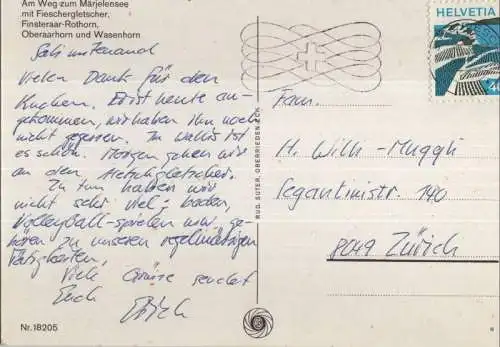 Am Weg zum Märjelensee
mit Fieschergletscher,
Finsteraar-Rothorn,
Oberaarhorn und Wasenhorn
Vielen Dank für den
Kuchen. Er ist heute an-
gekommen, wir haben ihn noch
nicht gegessen. In Wallis ist
es schön. Morgen gehen wir
an den Aletschgletscher.
Zu tun haben wir
nicht sehr viel - baden,
Volleyball-spielen usw. ge-
hören zu unseren regelmässigen
Tätigkeiten.
Viele Grüsse sendet
Euch Erich
Nr. 18205
RUD. SUTER, OBERRIEDEN-ZCH
HELVETIA
40
Fam.
H. Willi-Muggli
Segantinistr. 140
8049 Zürich